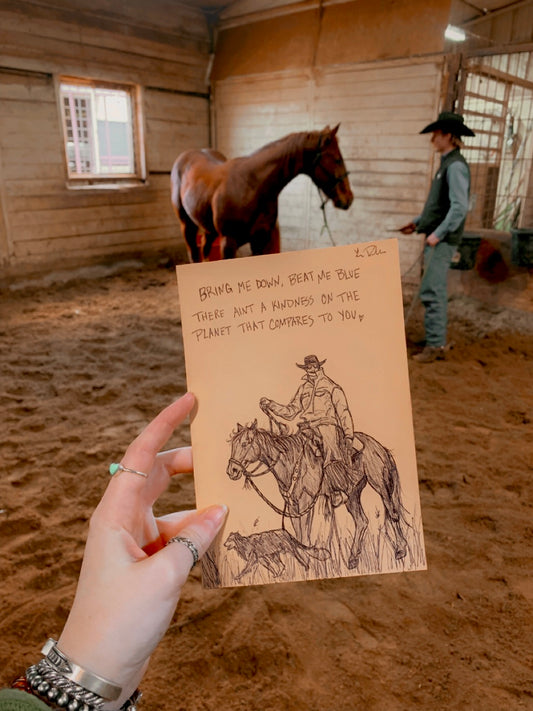 BRING ME DOWN, BEAT ME BLUE
THERE AINT A KINDNESS ON THE
PLANET THAT COMPARES TO YOU